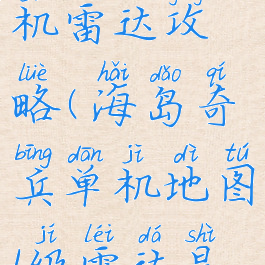 机雷达攻
lüè hǎi dǎo qí
略(海岛奇
bīng dān jī dì tú
兵单机地图
jí léi dá shì
级雷达是